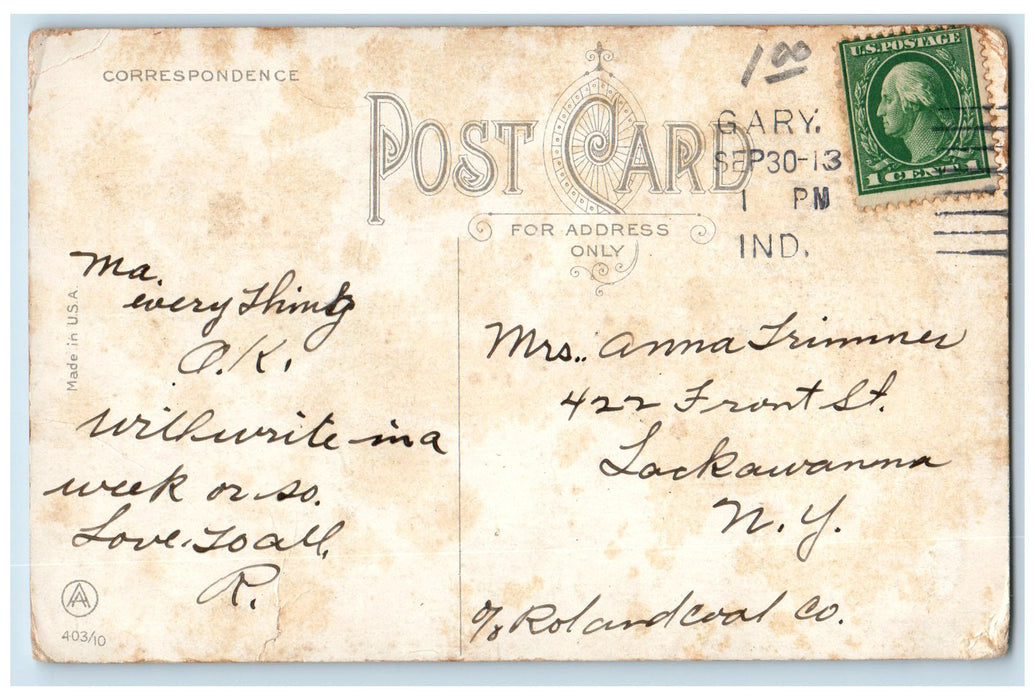 CORRESPONDENCE
POST CARD
FOR ADDRESS
ONLY
1 00
GARY.
SEP 30-13
1 PM
IND.
U.S. POSTAGE
1 CENT 1
Made in U.S.A.
Ma.
every thing
O.K.
will write in a
week or so.
Love to all,
R.
Mrs. Anna Trimmer
422 Front St.
Lackawanna
N.Y.
c/o Roland Coal Co.
AA
403/10